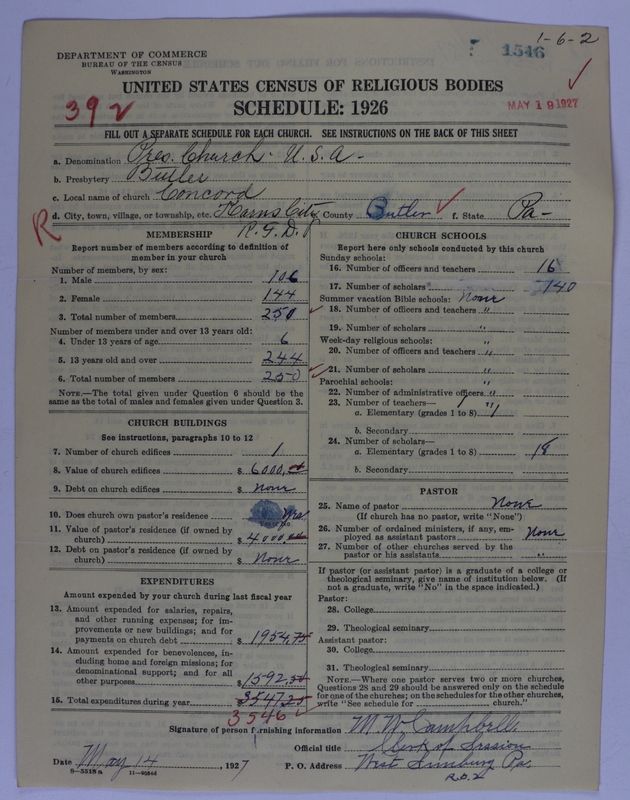 1-6-2
1546
DEPARTMENT OF COMMERCE
BUREAU OF THE CENSUS
WASHINGTON
UNITED STATES CENSUS OF RELIGIOUS BODIES
SCHEDULE: 1926
392
MAY 19 1927
FILL OUT A SEPARATE SCHEDULE FOR EACH CHURCH. SEE INSTRUCTIONS ON THE BACK OF THIS SHEET
a. Denomination Pres. Church - U.S.A -
b. Presbytery Butler
c. Local name of church Concord
d. City, town, village, or township, etc. Karns City County Butler f. State Pa-
R
R.F.D.
MEMBERSHIP
Report number of members according to definition of
member in your church
Number of members, by sex:
1. Male 106
2. Female 144
3. Total number of members 250
Number of members under and over 13 years old:
4. Under 13 years of age 6
5. 13 years old and over 244
6. Total number of members 250
NOTE.—The total given under Question 6 should be
same as the total of males and females given under Question 3.
CHURCH BUILDINGS
See instructions, paragraphs 10 to 12
7. Number of church edifices 1
8. Value of church edifices $ 6000.00
9. Debt on church edifices $ None
10. Does church own pastor's residence Yes
11. Value of pastor's residence (if owned by
church) $ 4000.00
12. Debt on pastor's residence (if owned by
church) $ None
EXPENDITURES
Amount expended by your church during last fiscal year
13. Amount expended for salaries, repairs,
and other running expenses; for im-
provements or new buildings; and for
payments on church debt $ 1954.75
14. Amount expended for benevolences, in-
cluding home and foreign missions; for
denominational support; and for all
other purposes $ 1592.50
15. Total expenditures during year $ 3547.25
3546
CHURCH SCHOOLS
Report here only schools conducted by this church
Sunday schools:
16. Number of officers and teachers 16
17. Number of scholars 140
Summer vacation Bible schools: None
18. Number of officers and teachers "
19. Number of scholars "
Week-day religious schools: "
20. Number of officers and teachers "
21. Number of scholars "
Parochial schools: "
22. Number of administrative officers "
23. Number of teachers—
a. Elementary (grades 1 to 8)
b. Secondary
24. Number of scholars—
a. Elementary (grades 1 to 8)
b. Secondary
PASTOR
25. Name of pastor None
(If church has no pastor, write "None")
26. Number of ordained ministers, if any, em-
ployed as assistant pastors None
27. Number of other churches served by the
pastor or his assistants "
If pastor (or assistant pastor) is a graduate of a college or
theological seminary, give name of institution below. (If
not a graduate, write "No" in the space indicated.)
Pastor:
28. College
29. Theological seminary
Assistant pastor:
30. College
31. Theological seminary
NOTE.—Where one pastor serves two or more churches,
Questions 28 and 29 should be answered only on the schedule
for one of the churches; on the schedules for the other churches
write "See schedule for church."
Signature of person furnishing information M W Campbell
Official title Clerk of Session
Date May 14, 1927 P. O. Address West Sunbury Pa.
8-5518a
R.D.2